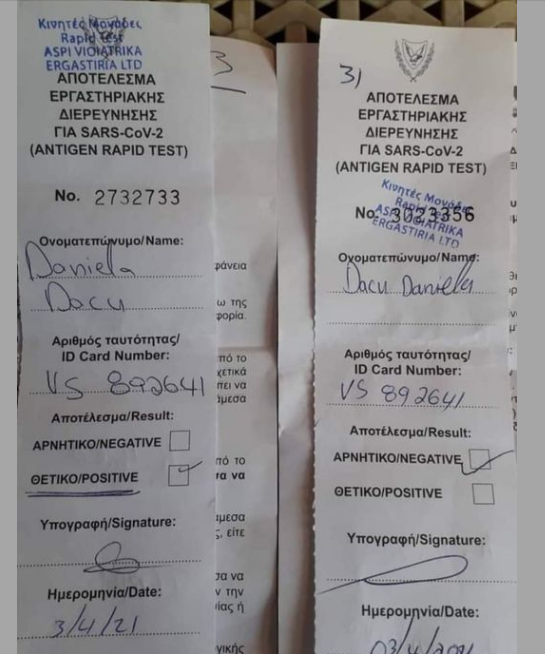 Κινητές Μονάδες
Rapid Test
ASPI VIOIATRIKA
ERGASTIRIA LTD
ΑΠΟΤΕΛΕΣΜΑ
ΕΡΓΑΣΤΗΡΙΑΚΗΣ
ΔΙΕΡΕΥΝΗΣΗΣ
ΓΙΑ SARS-CoV-2
(ANTIGEN RAPID TEST)
No. 2732733
Ονοματεπώνυμο/Name:
Daniela
Dacu
Αριθμός ταυτότητας/
ID Card Number:
VS 892641
Αποτέλεσμα/Result:
ΑΡΝΗΤΙΚΟ/NEGATIVE
ΘΕΤΙΚΟ/POSITIVE
Υπογραφή/Signature:
Ημερομηνία/Date:
3/4/21
φάνεια
ω της
φορία.
πό το
χετικά
πει να
άμεσα
πό το
σα να
άμεσα
ς, είτε
σα να
ν την
ίας ή
γικής
31
ΑΠΟΤΕΛΕΣΜΑ
ΕΡΓΑΣΤΗΡΙΑΚΗΣ
ΔΙΕΡΕΥΝΗΣΗΣ
ΓΙΑ SARS-CoV-2
(ANTIGEN RAPID TEST)
Κινητές Μονάδες
Rapid Test
ASPI VIOIATRIKA
ERGASTIRIA LTD
No. 3023356
Ονοματεπώνυμο/Name:
Dacu Daniela
Αριθμός ταυτότητας/
ID Card Number:
VS 892641
Αποτέλεσμα/Result:
ΑΡΝΗΤΙΚΟ/NEGATIVE
ΘΕΤΙΚΟ/POSITIVE
Υπογραφή/Signature:
Ημερομηνία/Date: